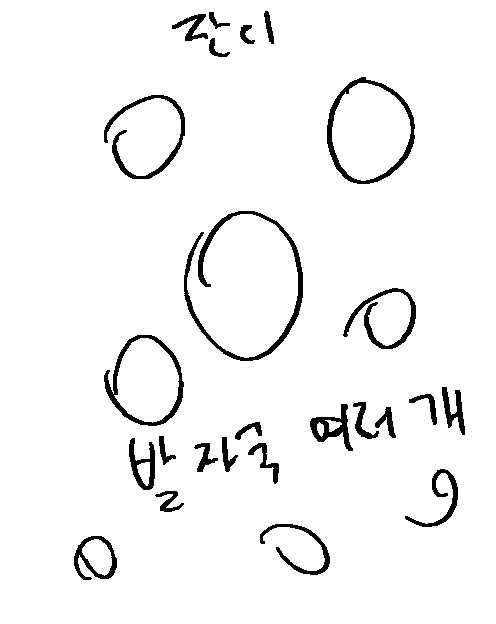 잔디
발자국 여러 개